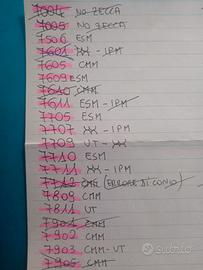 7004 NO ZECCA
7005 NO ZECCA
7506 ESM
7601 XX - IPM
7605 CMM
7609 ESM
7610 CMM
7611 ESM - IPM
7705 ESM
7707 XX - IPM
7709 UT - XX
7710 ESM
7711 XX - IPM
7712 CMM (ERRORE DI CONIO)
7809 CMM
7811 UT
7901 CMM
7902 CMM
7903 CMM - UT
7905 CMM
subito